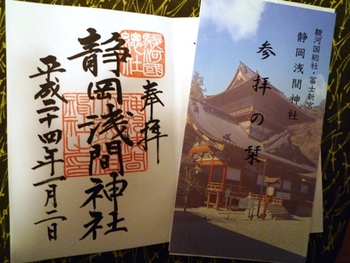 奉拝
駿河國
總社
静岡浅間神社
平成二十四年一月二日
駿河国総社・富士新宮
静岡浅間神社
参拝の栞